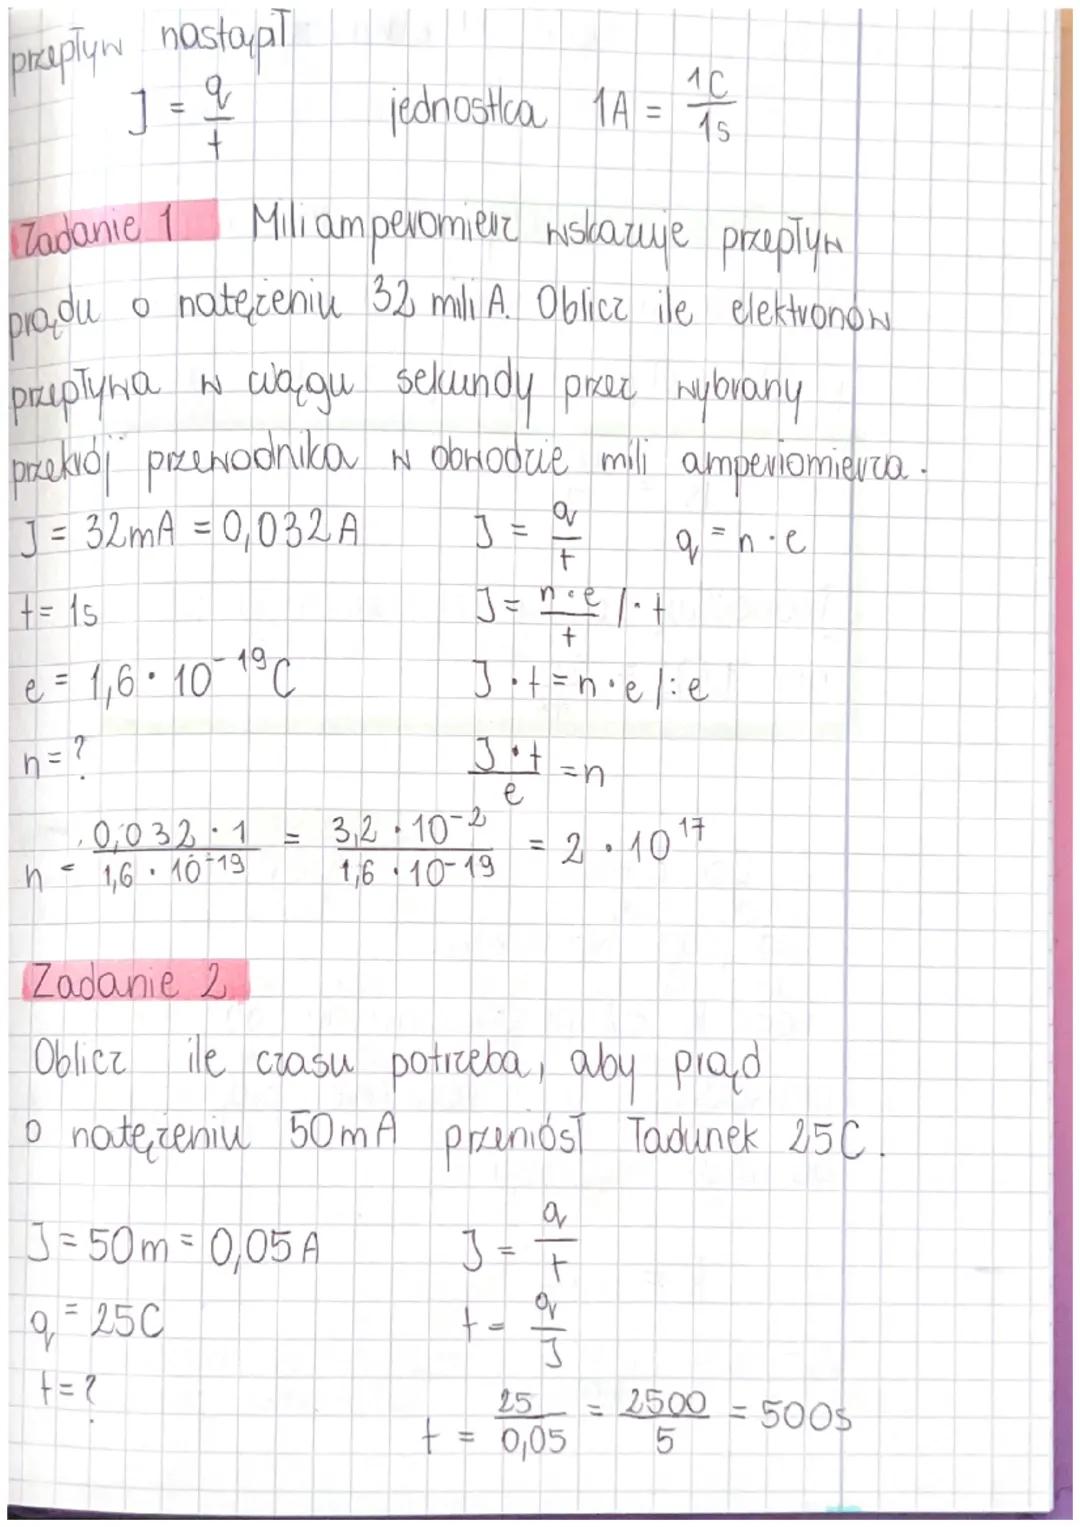 przepływ nastąpił
J = q/t jednostka 1A = 1C/1s
Zadanie 1 Miliamperomierz wskazuje przepływ
prądu o natężeniu 32 mili A. Oblicz ile elektronów
przepływa w ciągu sekundy przez wybrany
przekrój przewodnika w obwodzie mili amperiomierza.
J = 32mA = 0,032A J = q/t q = n·e
t = 1s J = n·e/t /·t
e = 1,6·10⁻¹⁹C J·t = n·e /:e
n = ? J·t/e = n
n = 0,032·1/1,6·10⁻¹⁹ = 3,2·10⁻²/1,6·10⁻¹⁹ = 2·10¹⁷
Zadanie 2
Oblicz ile czasu potrzeba, aby prąd
o natężeniu 50mA przeniósł ładunek 25C.
J = 50m = 0,05A J = q/t
q = 25C t = q/J
t = ?
t = 25/0,05 = 2500/5 = 500s